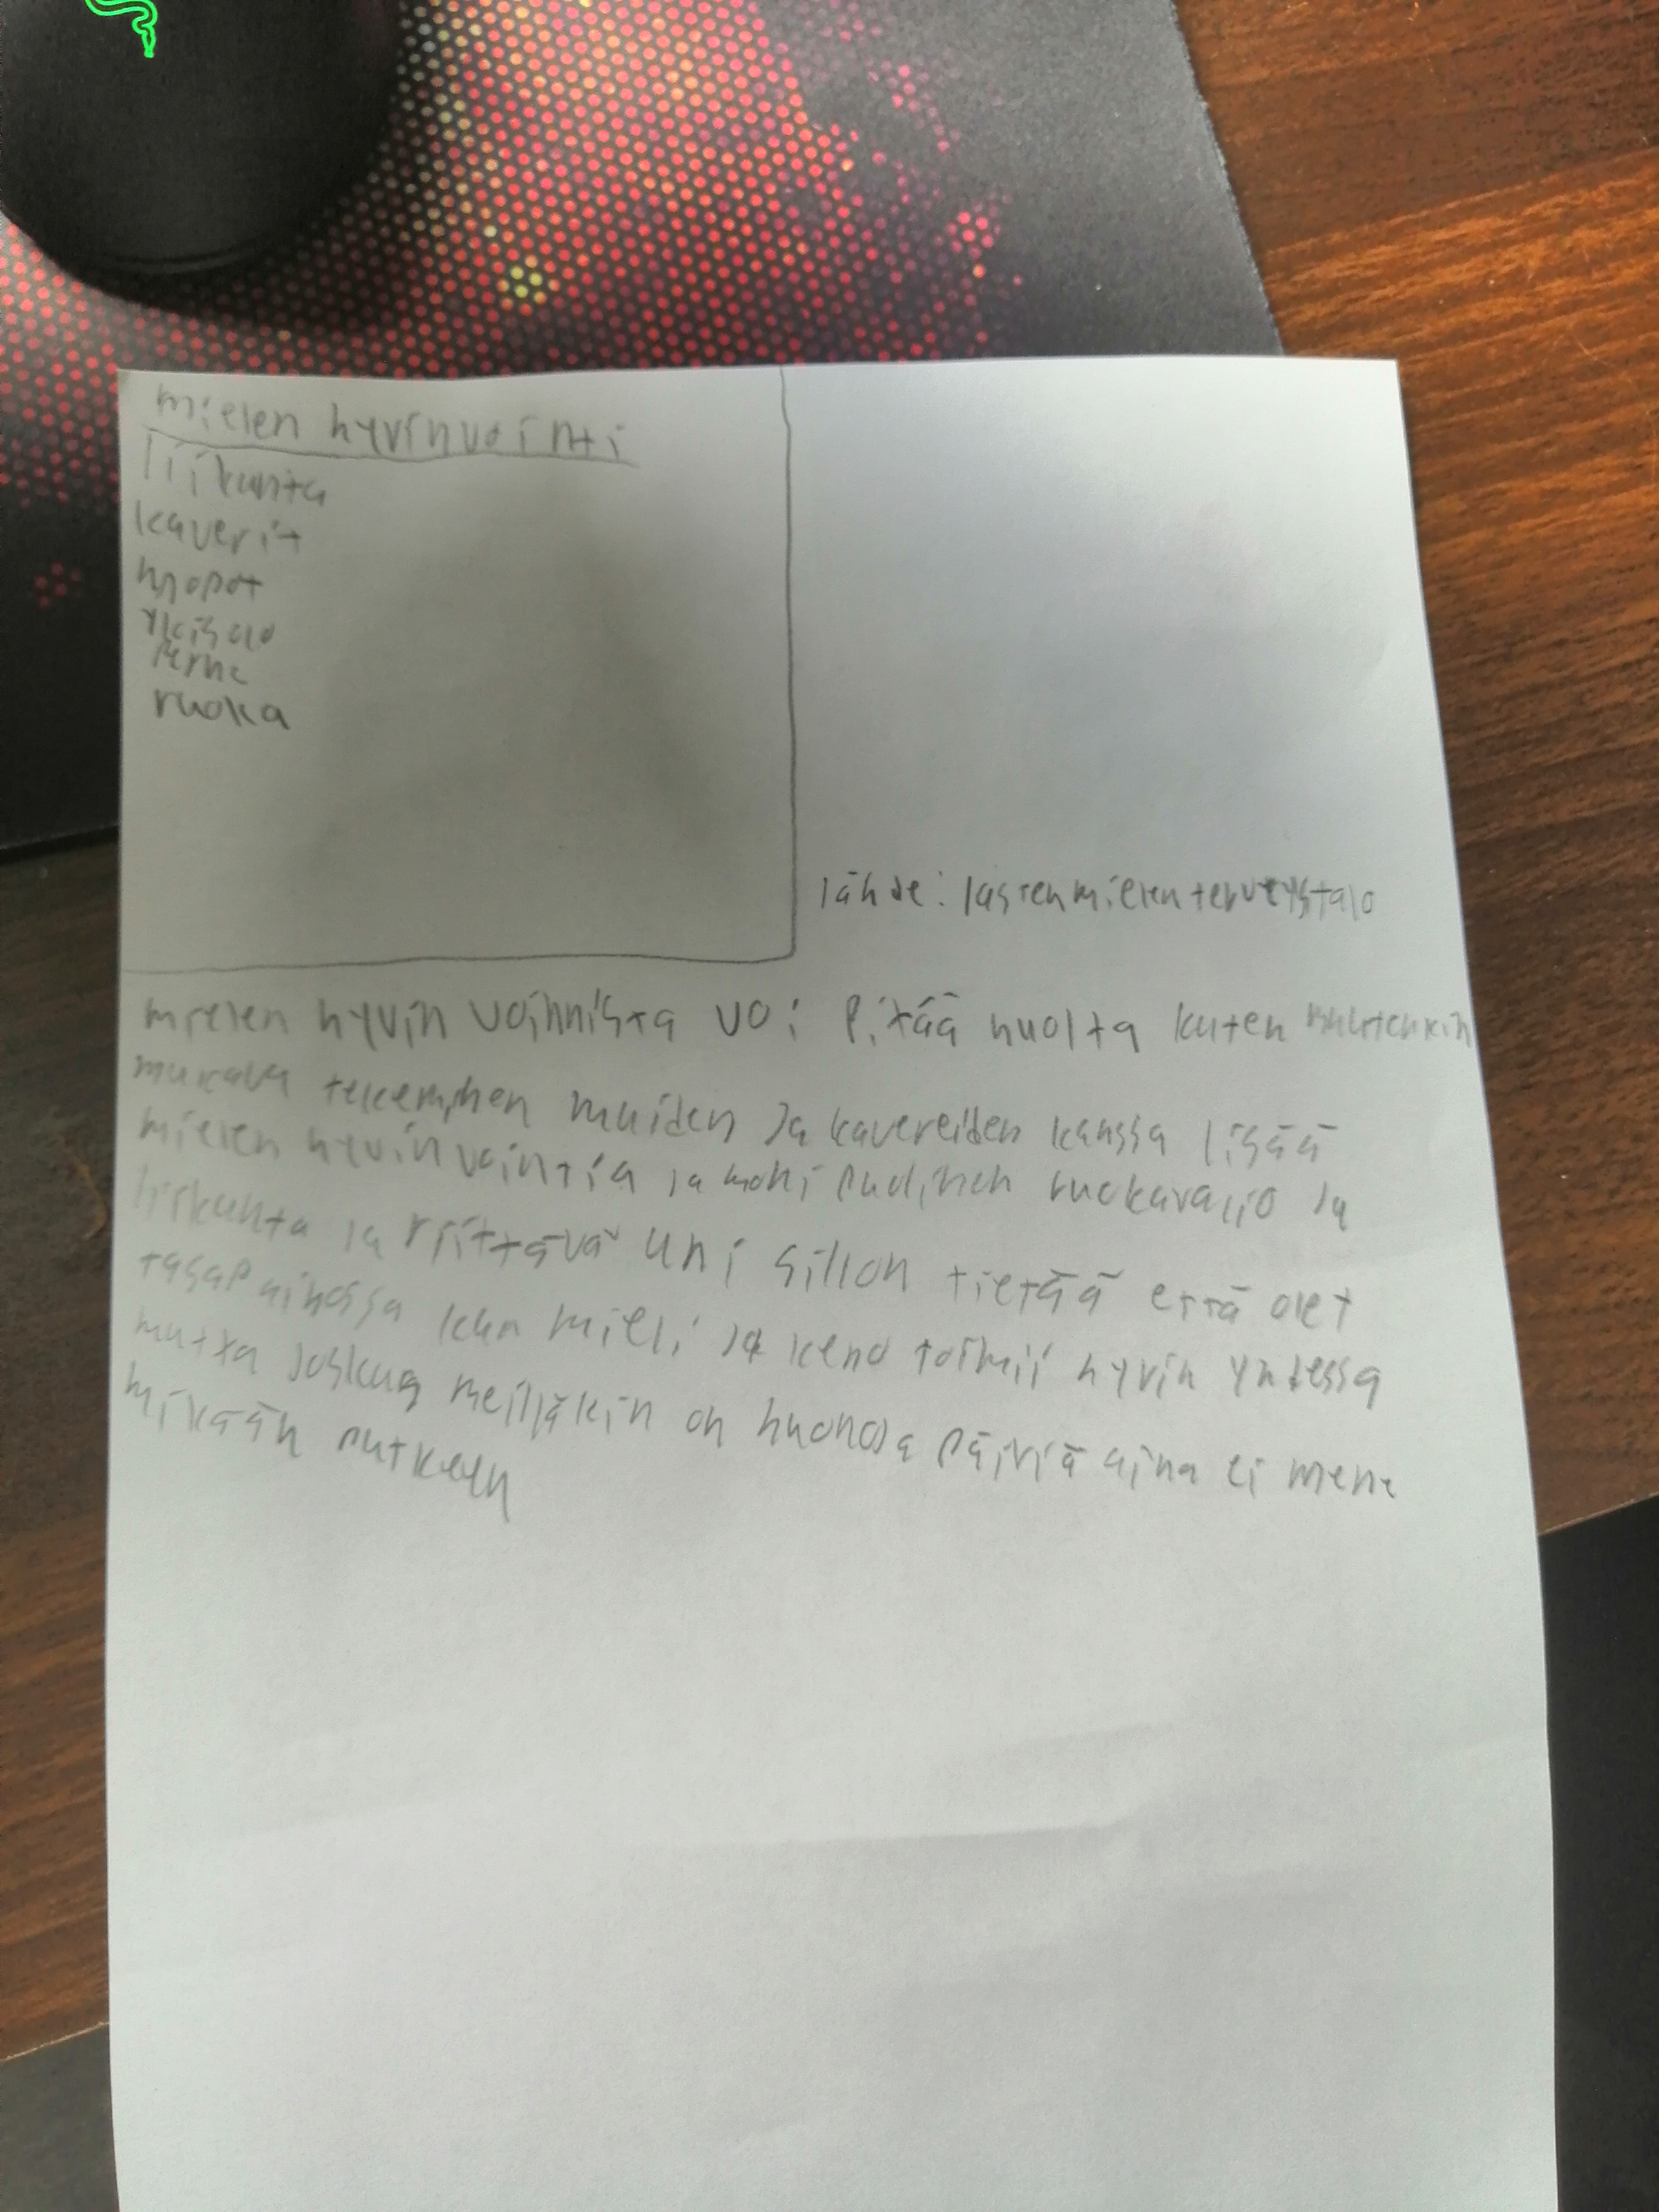 mielen hyvinvointi
liikunta
kaverit
ruoka
lähde: lastenmielenterveystalo
mielen hyvin voinnista voi pitää huolta kuten
mukava muiden ja kavereiden kanssa lisää
mielen hyvinvointia ja moni ruokavalio ja
liikunta ja riittävä uni sillon tietää että olet
tasapainossa kun mieli ja keho toimii hyvin yhdessä
mutta joskus meilläkin on huonoja päiviä aina ei mene
mikään putkeen